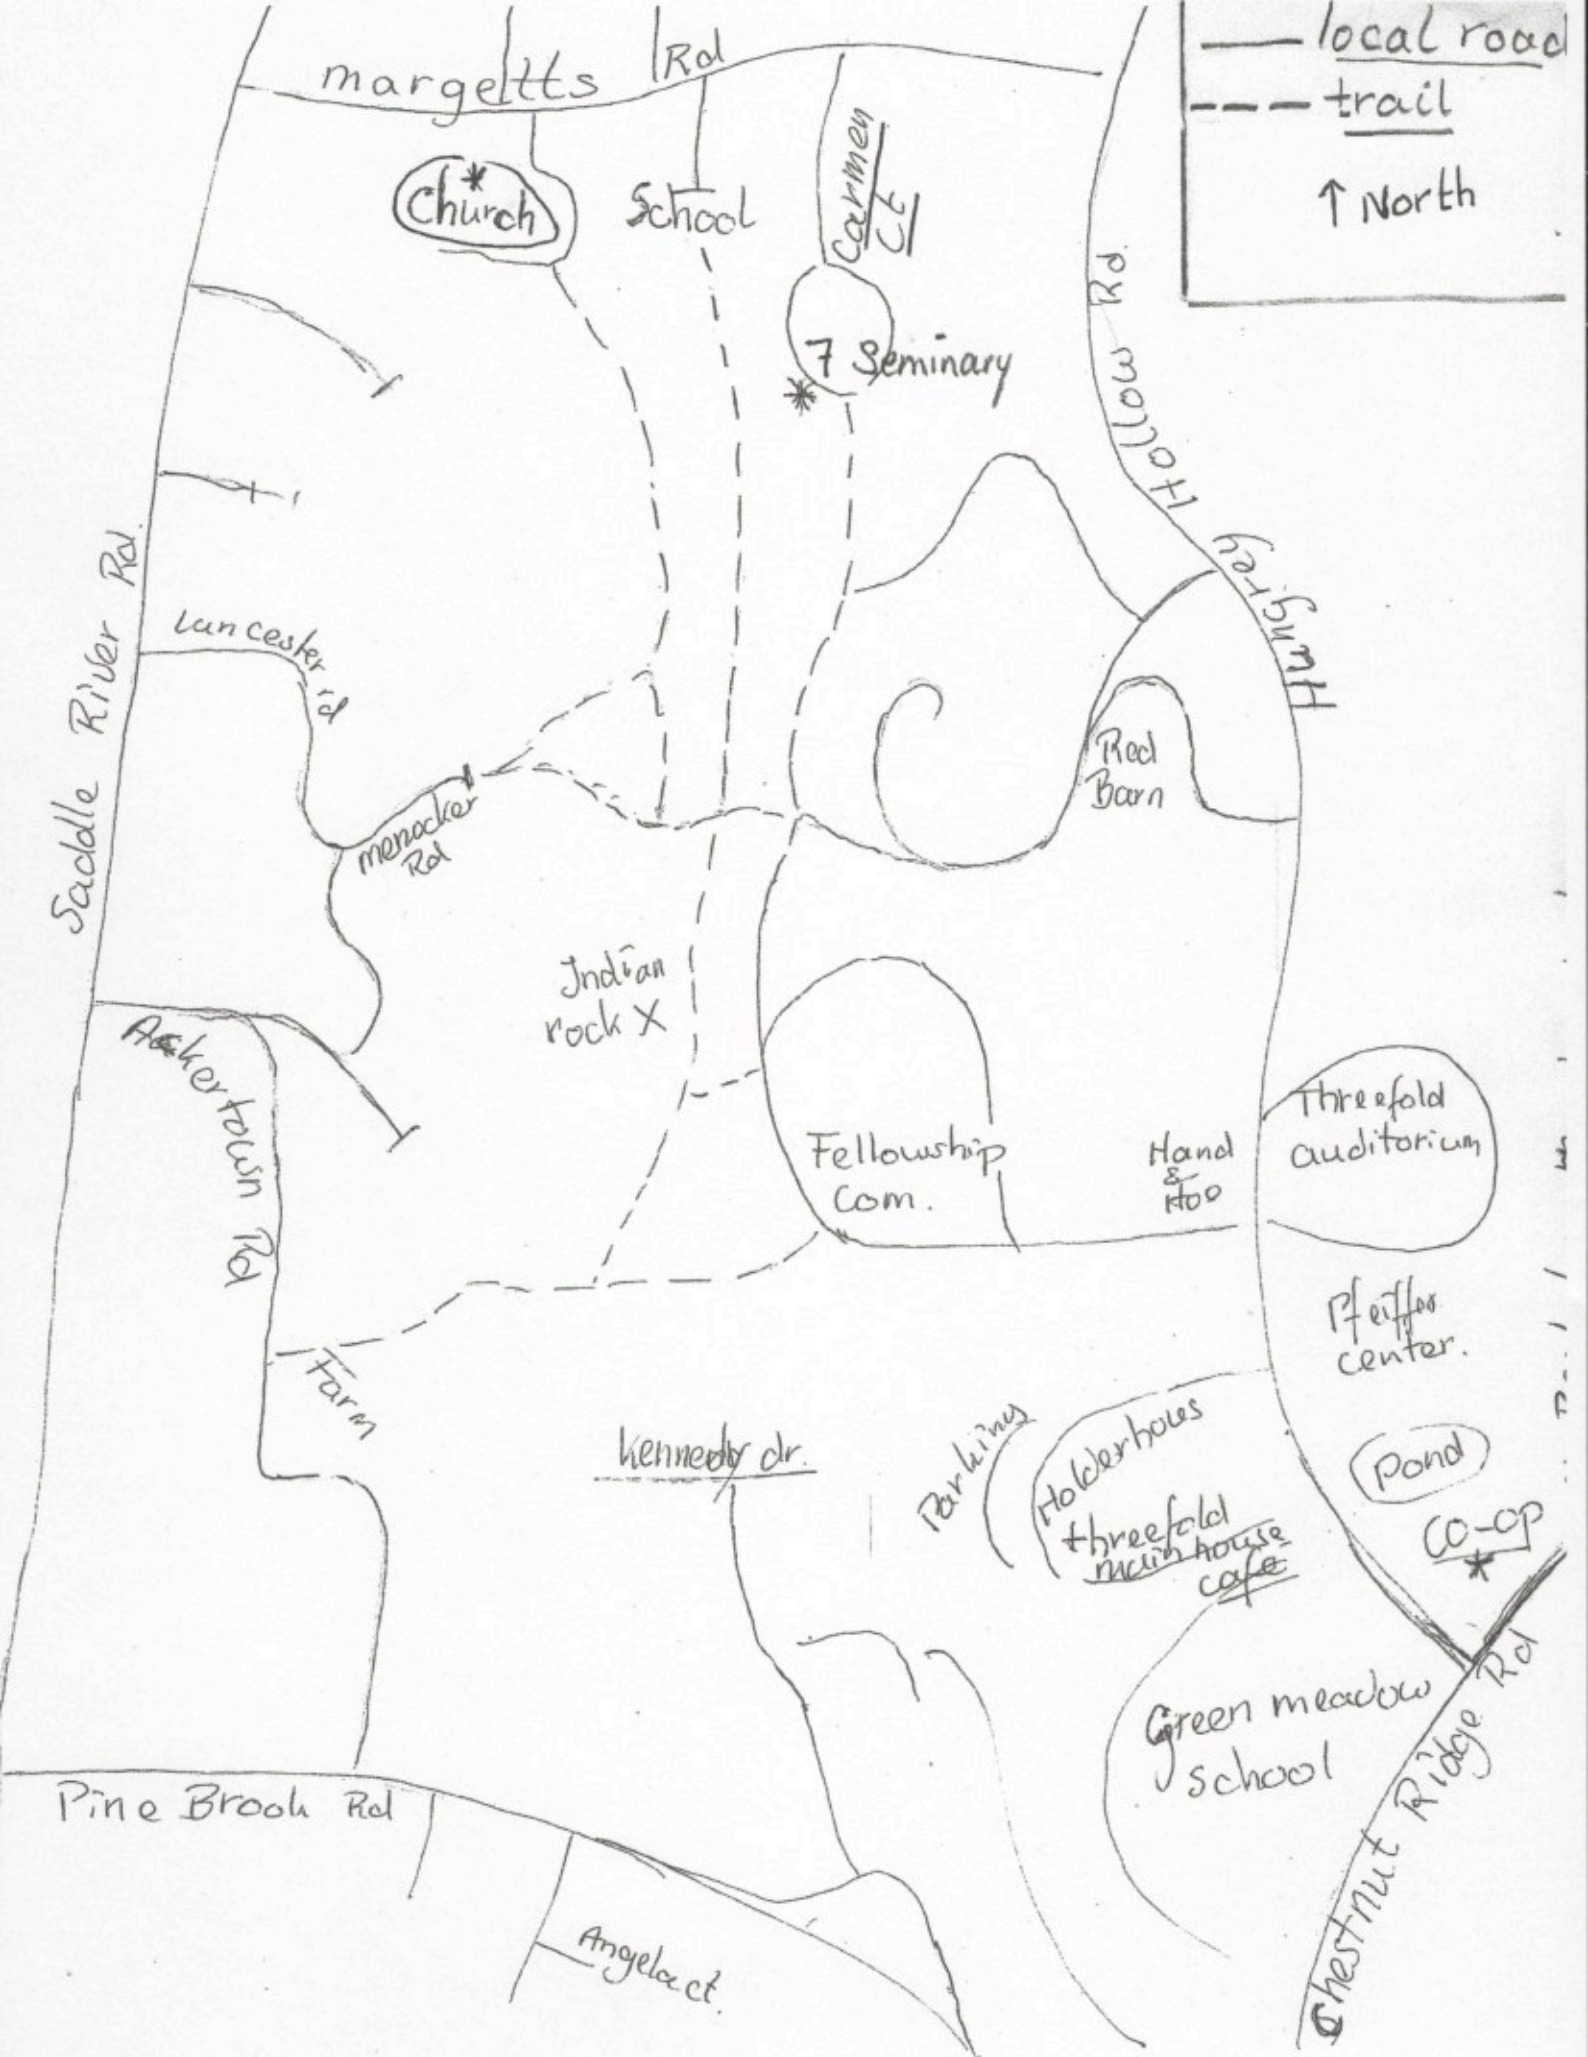 local road
trail
↑ North
margetts Rd
Church
School
Carmen
Ct
7 Seminary
Hungrey Hollow Rd.
Saddle River Rd.
Luncester rd
Red
Barn
menocker
Rd
Indian
rock X
Ackertown Rd
Fellowship
Com.
Hand
&
Hoe
Threefold
auditorium
Pfeiffer
center.
Farm
Kennedy dr.
Parking
Holderhous
threefold
main house
cafe
Pond
CO-OP
Green meadow
school
Chestnut Ridge Rd
Pine Brook Rd
Angela ct.